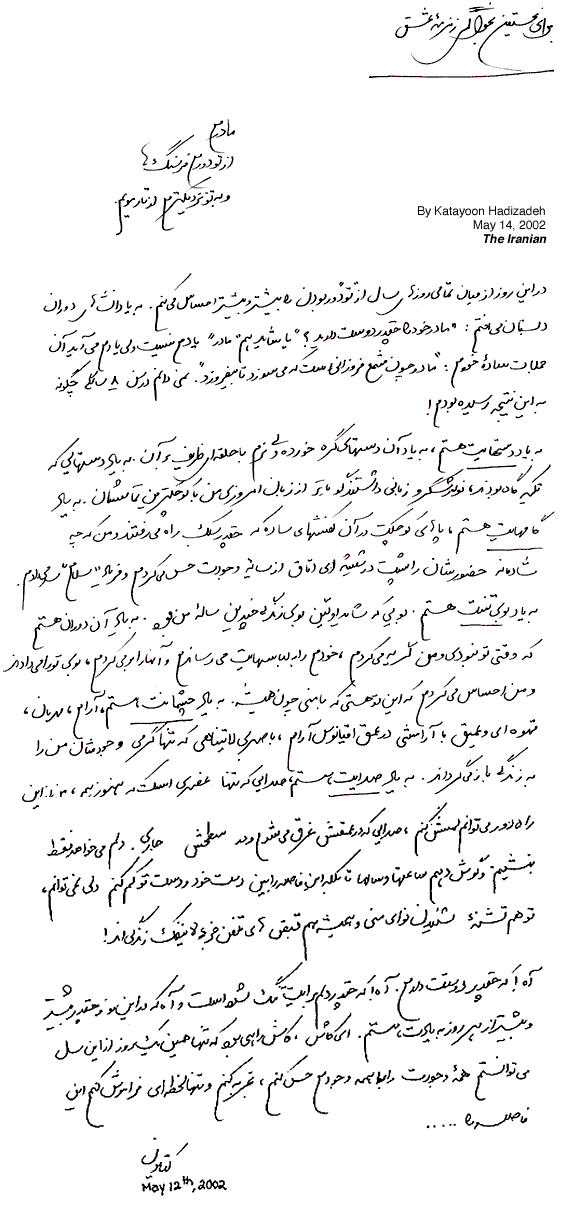 برای نخستین نجواگر زمزمهٔ عشق
مادرم
از تو دورم فرسنگ ها
و به تو نزدیکترم از تار مویم
By Katayoon Hadizadeh
May 14, 2002
The Iranian
در این روز از میان تمامی روزهای سال از تو دور بودن را بیشتر و بیشتر احساس می کنم. به یاد انشاهای دوران
دبستان می افتم: "مادر خود را چقدر دوست دارید؟" یا شاید هم "مادر" یادم نیست ولی یادم می آید آن
جملات سادهٔ خودم: "مادر چون شمع فروزانی است که می سوزد تا بیفروزد". نمی دانم در سن ۸ سالگی چگونه
به این نتیجه رسیده بودم!
به یاد دستهایت هستم، به یاد آن دستهای گره خورده و نرم با حلقه ای ظریف بر آن. به یاد دستهایی که
تکیه گاه بودند، نوازشگر و زبانی داشتند گویاتر از زبان امروزی من با کوچکترین تماسشان. به یاد
گامهایت هستم، پاهای کوچکت در آن کفشهای ساده که چقدر سبک راه می رفتند و من که چه
شادمانه حضورشان را پشت در شیشه ای اتاق از سایهٔ وجودت حس می کردم و فریاد "سلام" سر می دادم.
به یاد بوی تنت هستم. بویی که شاید اولین بوی زندگی چندین سالهٔ من بود. به یاد آن دوران هستم
که وقتی تو نبودی و من گریه می کردم، خودم را به لباسهایت می رساندم و آنها را بو می کردم، بوی تو را می دادند
و من احساس می کردم که این تو هستی که با منی چون همیشه. به یاد چشمانت هستم، آرام، مهربان،
قهوه ای و عمیق با آرامشی در عمق اقیانوس آرام، با صبری لایتناهی که تنها گرمی وجودشان من را
به زندگی باز می گرداند. به یاد صدایت هستم، صدایی که تنها عنصری است که هنوز هم، از این
راه دور می توانم لمسش کنم، صدایی که در عمقش غرق می شوم و در سطحش جاری. دلم می خواهد فقط
بنشینم و گوش دهم ساعتها و سالها تا بلکه این فاصله را بین دست خود و دست تو کم کنم ولی نمی توانم،
تو هم تشنهٔ شنیدن نوای منی و همیشه هم قبض های تلفن جزء لاینفک زندگی اند!
آه! که چقدر دوستت دارم. آه! که چقدر دلم برایت تنگ شده است و آه که در این روز چقدر بیشتر
و بیشتر از هر روز به یادت هستم. ای کاش، کاش راهی بود که تنها همین یک روز از این سال
می توانستم همهٔ وجودت را با همه وجودم حس کنم، تجربه کنم و تنها لحظه ای فراموش کنم این
فاصله را .....
کتایون
May 12th, 2002